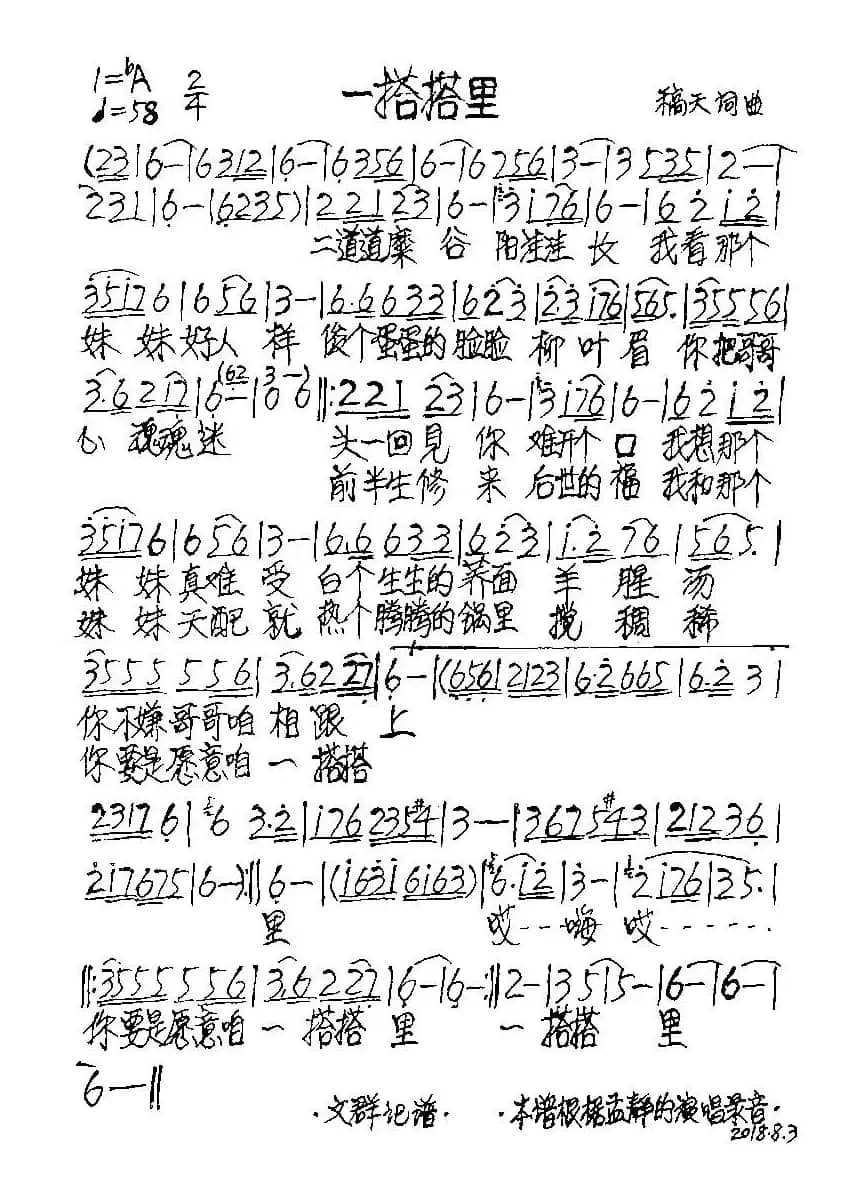 1=♭A 2/4 一搭搭里 稿天词曲
♩=58
(23|6—|6312|6—|6356|6—|6256|3—|3535|2—|
231|6—|6235)|221 23|6—|3 176|6—|62 12|
二道道糜 谷 阳洼洼 长 我看那个
35176|656|3—|6·6633|623|2·3176|565·|355556|
妹 妹好人 样 俊个蛋蛋的脸脸 柳 叶 眉 你把哥哥
3·6217|6—(62|3—)06‖:221 23|6—|3 176|6—|62 12|
心 魂魂迷 头一回見 你 难开个 口 我想那个
前半生修 来 后世的福 我和那个
35176|656|3—|6·6633|623|1·2 76|565·|
妹 妹真难 受 白个生生的荞面 羊 腥 汤
妹 妹天配 就 热个腾腾的锅里 搅 稠 稀
3555 556|3·6227|6—|(6561 2123|6·2665|6·2 3|
你不嫌哥哥咱 相 跟 上
你要是愿意咱 一 搭搭
2317 6|6 3·2|176 235#4|3—|3675#43|21236|
217675|6—):‖6—|(1631 6163)|6·12|3—|2176|35·|
里 哎---嗨 哎------
‖:3555 556|3·6227|6—|6—:‖2—|35|5—|6—|6—|
你要是愿意咱 一 搭搭 里 一 搭搭 里
6—‖
·文群记谱· ·本谱根据孟静的演唱录音·
2018.8.3